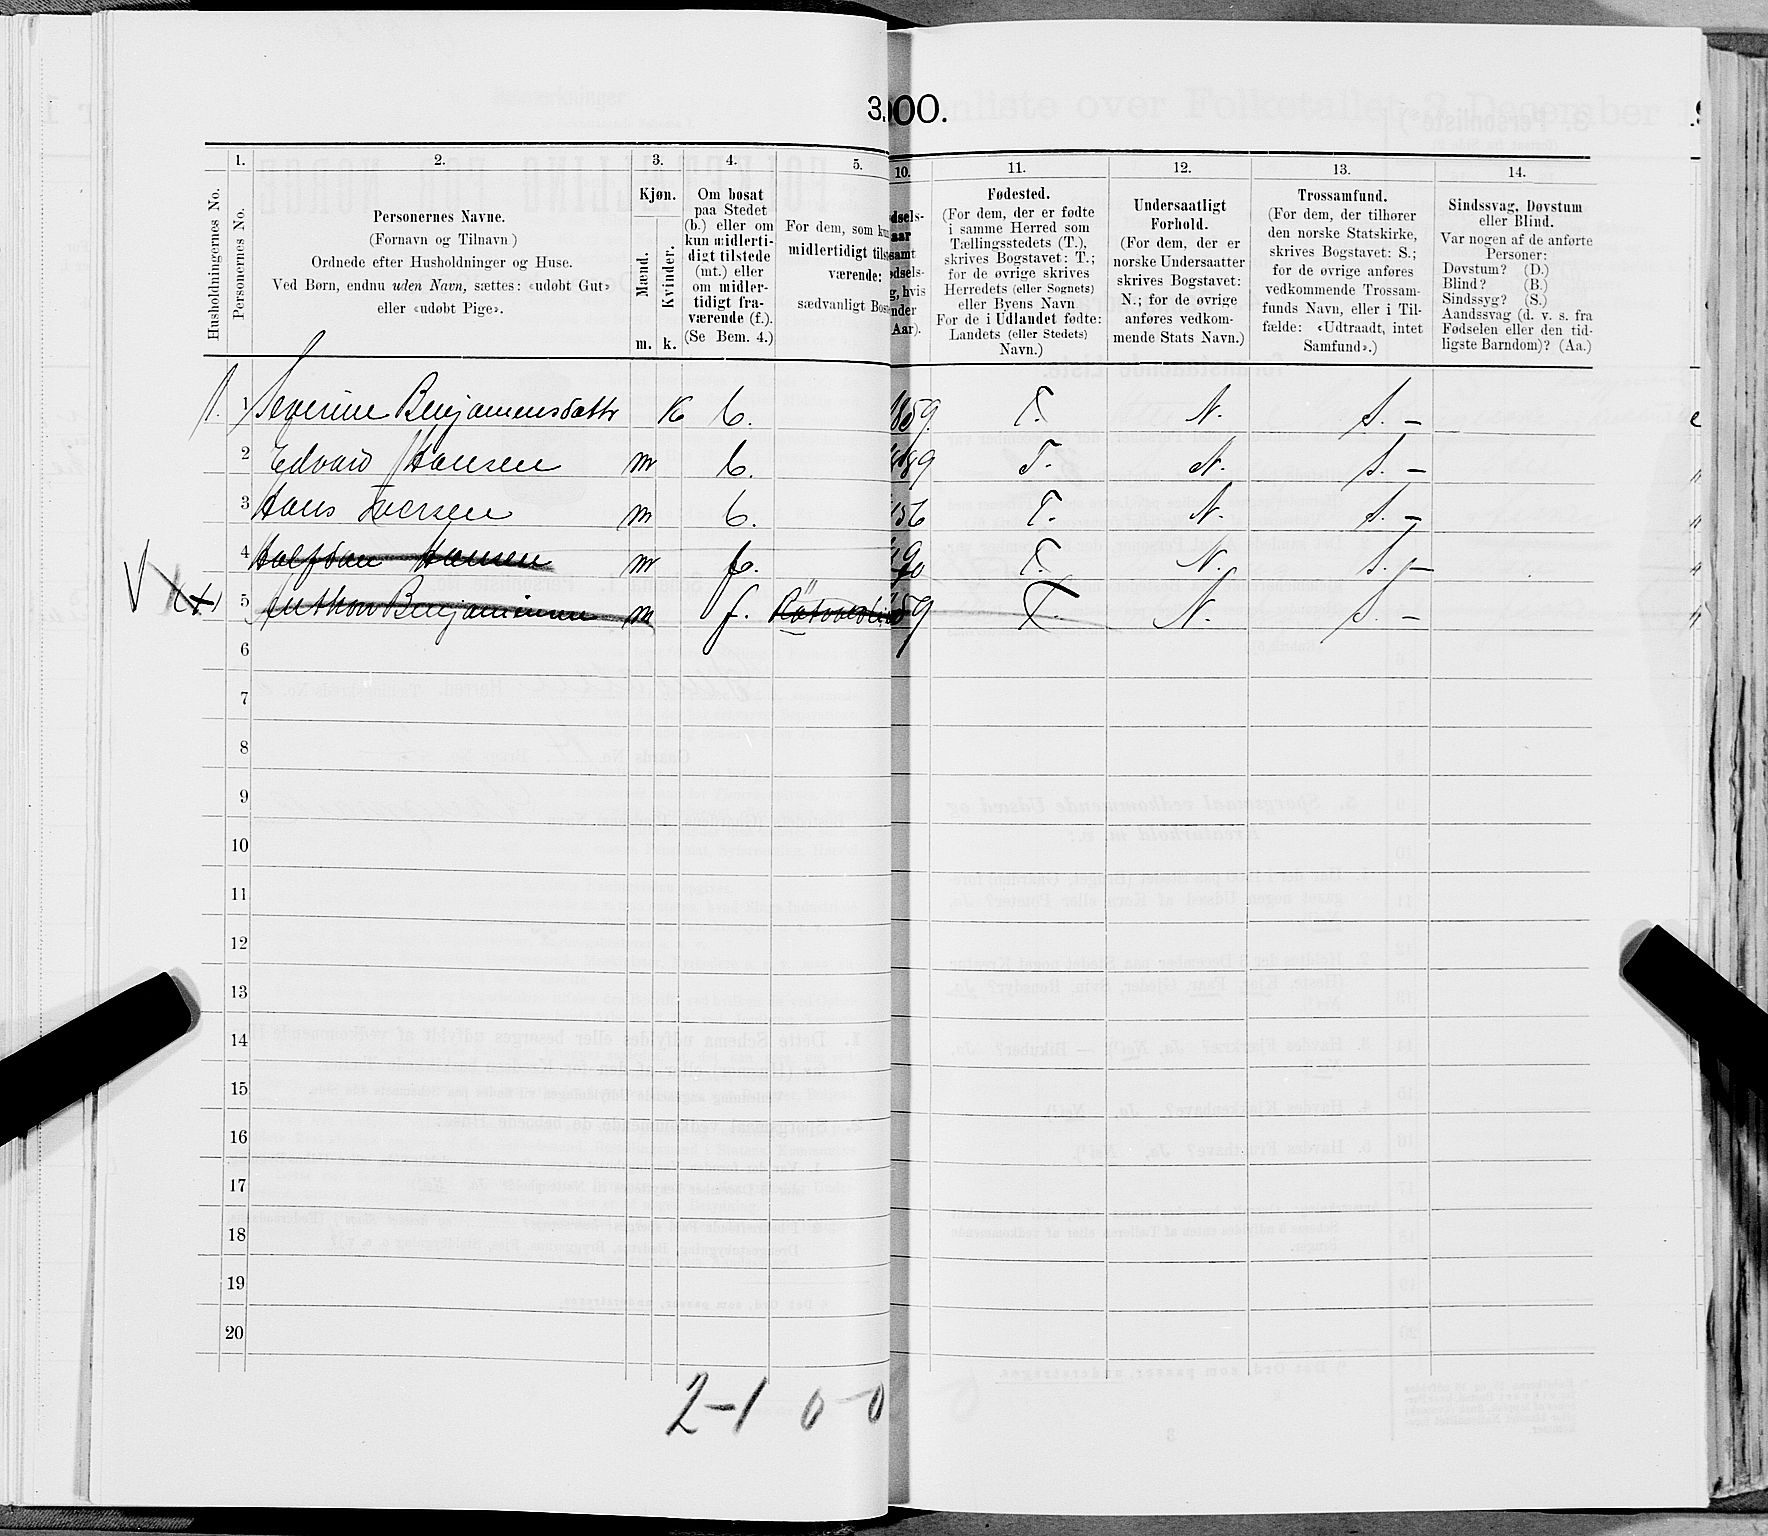 3.00.
1. 2. 3. 4. 5. 10. 11. 12. 13. 14.
Husholdningernes No.
Personernes No.
Personernes Navne.
(Fornavn og Tilnavn)
Ordnede efter Husholdninger og Huse.
Ved Børn, endnu uden Navn, sættes: «udøbt Gut»
eller «udøbt Pige».
Kjøn.
Mænd.
Kvinder.
m. k.
Om bosat
paa Stedet
(b.) eller om
kun midlerti-
digt tilstede
(mt.) eller
om midler-
tidigt fra-
værende (f.).
(Se Bem. 4.)
For dem, som kun
midlertidigt tils
værende:
sædvanligt Bos
dsels-
aar
samt
dsels-
g, hvis
nder
Aar).
Fødested.
(For dem, der er fødte
i samme Herred som
Tællingsstedets (T.),
skrives Bogstavet: T.;
for de øvrige skrives
Herredets (eller Sognets)
eller Byens Navn
For de i Udlandet fødte:
Landets (eller Stedets)
Navn.)
Undersaatligt
Forhold.
(For dem, der er
norske Undersaatter
skrives Bogstavet:
N.; for de øvrige
anføres vedkom-
mende Stats Navn.)
Trossamfund.
(For dem, der tilhører
den norske Statskirke,
skrives Bogstavet: S.;
for de øvrige anføres
vedkommende Trossam-
funds Navn, eller i Til-
fælde: «Udtraadt, intet
Samfund».)
Sindssvag, Døvstum
eller Blind.
Var nogen af de anførte
Personer:
Døvstum? (D.)
Blind? (B.)
Sindssyg? (S.)
Aandssvag (d. v. s. fra
Fødselen eller den tid-
ligste Barndom)? (Aa.)
1. 1 Severine Benjamensdattr K b. 1859 T. N. S. –
2 Edvard Hansen m b. 89 T. N. S. –
3 Hans Iversen m b. 56 T. N. S. –
4 Halfdan Hansen m f. 90 T. N. S. –
5 Anthon Benjaminsen m f. 59 T. N. S. –
6
7
8
9
10
11
12
13
14
15
16
17
18
19
20
2–1 0–0